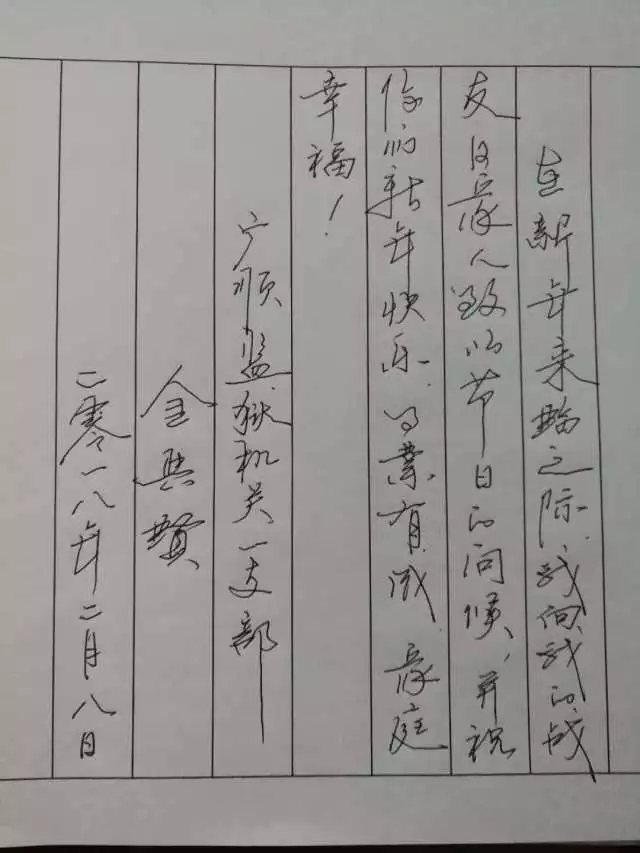 在新年来临之际，我向我的战
友及家人致以节日的问候，并祝
你们新年快乐，事业有成，家庭
幸福！
广顺监狱机关一支部
金兴贤
二零一八年二月八日